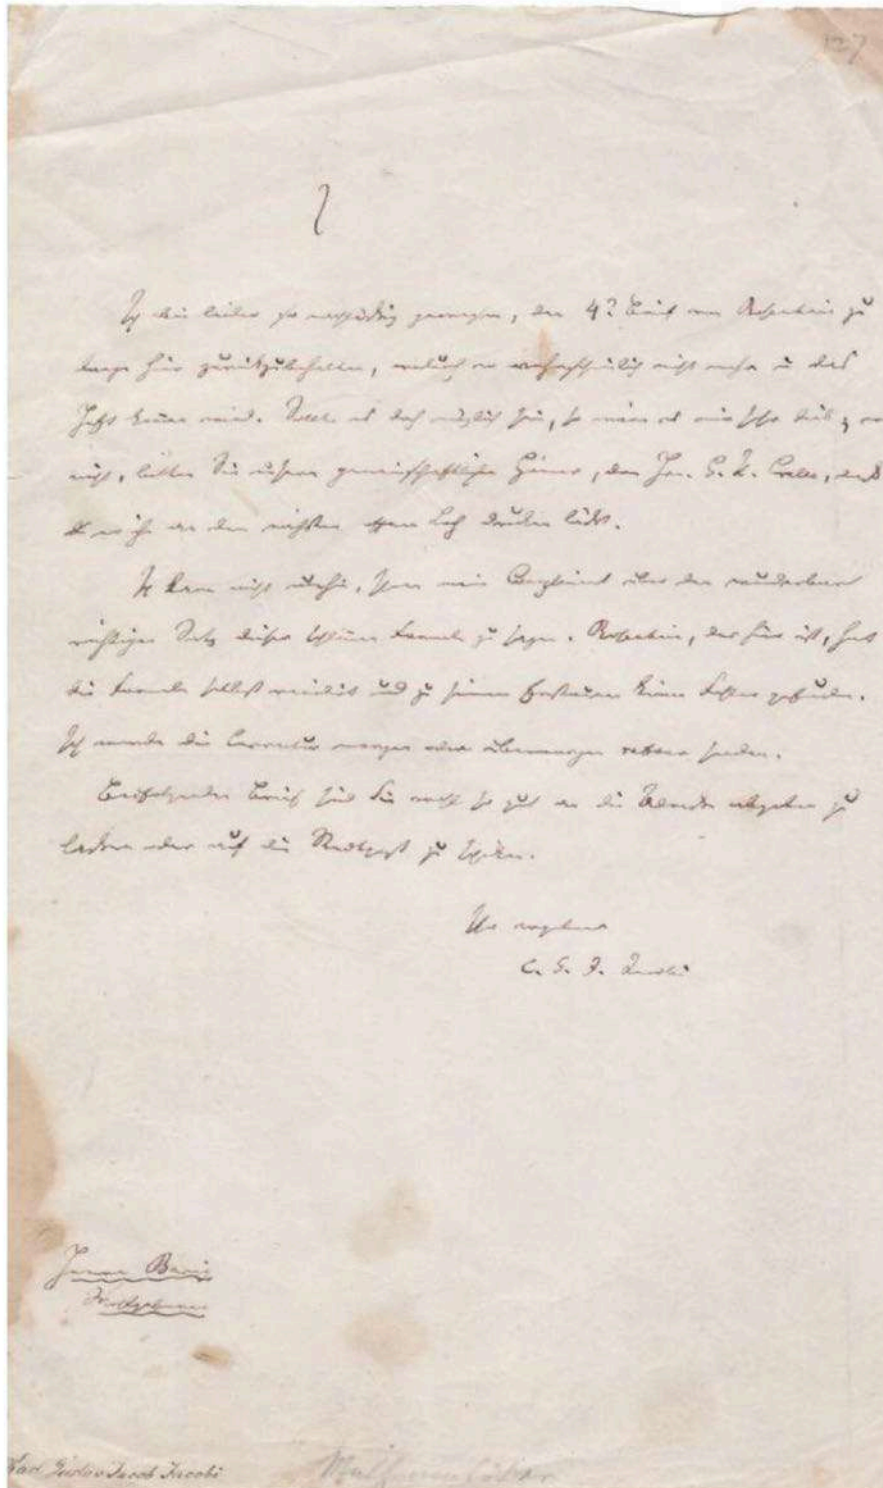 127
Ich bin leider so nachlässig gewesen, den 4t Brief von Rosenhain zu
lange hier zurückzubehalten, wodurch er wahrscheinlich nicht mehr in das
Heft kommen wird. Sollte es doch möglich sein, so wäre es mir sehr lieb; wo
nicht, bitten Sie unsern gemeinschaftlichen Gönner, den Hrn. G. R. Crelle, daß
er ihn an den nächsten offnen drucken läßt.
Ich kann nicht umhin, Ihnen mein Compliment über den wunderbar
richtigen Satz dieser schlimmen Formeln zu sagen. Rosenhain, der hier ist, hat
die Formeln selbst revidirt und zu seinem Erstaunen keinen Fehler gefunden.
Ich werde die Correctur morgen oder übermorgen senden.
Beifolgenden Brief sind Sie wohl so gut an die Adresse abgeben zu
lassen oder auf die Stadtpost zu schicken.
Ihr ergebener
C. G. J. Jacobi
Herrn
Wohlgeboren
Karl Gustav Jacob Jacobi
Mathematiker